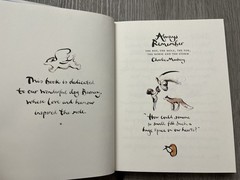 This book is dedicated
to our wonderful dog Barney,
whose love and humour
inspired the mole.
Always
Remember
THE BOY, THE MOLE, THE FOX,
THE HORSE AND THE STORM
Charlie Mackesy
"How could someone
so small fill such a
huge space in our hearts?"